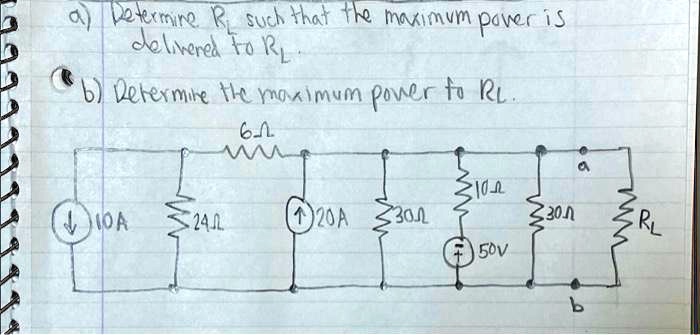 a) Determine RL such that the maximum power is
delivered to RL.
b) Determine the maximum power to RL.
6Ω
10A
24Ω
20A
30Ω
10Ω
50V
30Ω
a
RL
b